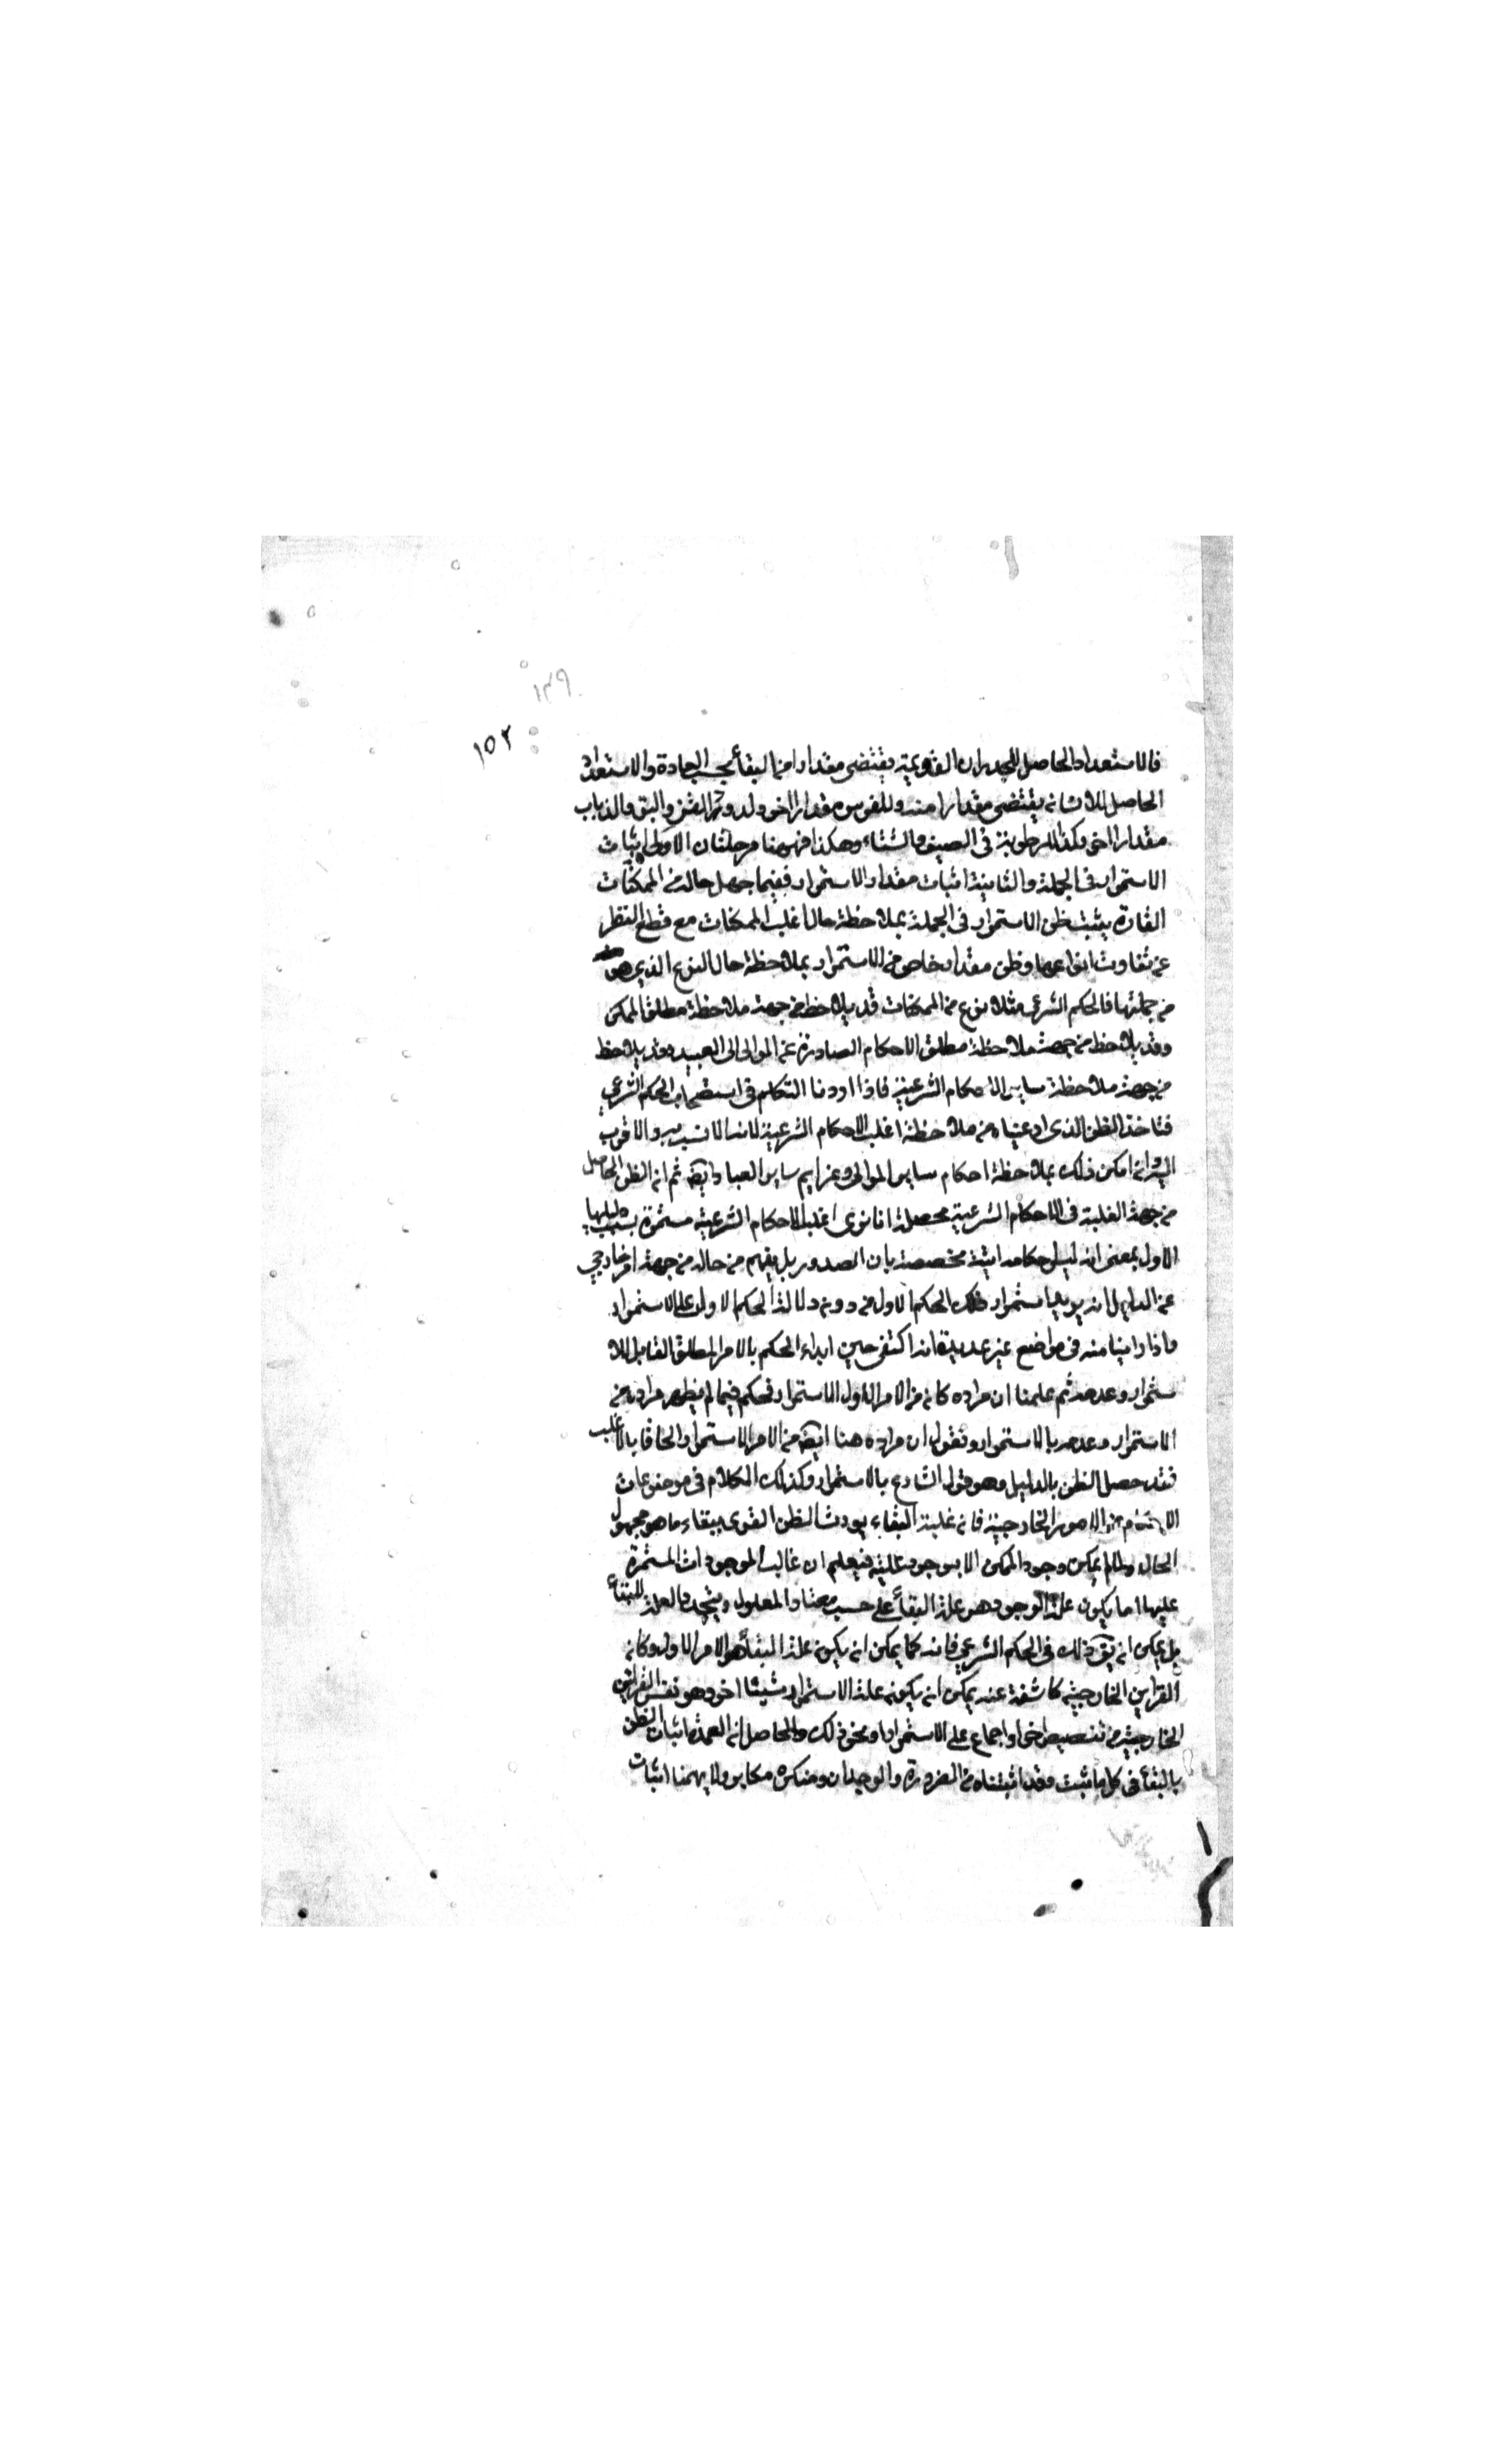 ١٤٩
١٥٢
فالاستعداد الحاصل للجدران القويمة يقتضى مقدارا من البقاء بحسب العادة والاستعداد
الحاصل للانسان يقتضى مقدارا منه وللفرس مقدارا اخر ولدود القز والبق والذباب
مقدارا اخر وكذا للرطوبة فى الصيف والشتاء وهكذا فهيهنا مرحلتان الاولى اثبات
الاستمرار فى الجملة والثانية اثبات مقدار الاستمرار ففيما جهل حاله من الممكنات
القارة يثبت ظن الاستمرار فى الجملة بملاحظة حال اغلب الممكنات مع قطع النظر
عن تفاوت انواعها وظن مقدار خاص من الاستمرار بملاحظة حال النوع الذى هو
من جملتها فالحكم الشرعى مثلا نوع من الممكنات قد يلاحظ من جهة ملاحظة مطلق الممكن
وقد يلاحظ من جهة ملاحظة مطلق الاحكام الصادرة عن الموالى الى العبيد وقد يلاحظ
من جهة ملاحظة ساير الاحكام الشرعية فاذا اردنا التكلم فى استصحاب الحكم الشرعى
فناخذ الظن الذى ادعيناه من ملاحظة اغلب الاحكام الشرعية لانه الانسب به والاقرب
اليه وان امكن ذلك بملاحظة احكام ساير الموالى وعزايم ساير العباد ايضه ثم ان الظن الحاصل
من جهة الغلبة فى الاحكام الشرعية محصله انا نرى اغلب الاحكام الشرعية مستمرة بسبب دليلها
الاول بمعنى انه ليس احكاما انية مختصة بان الصدور بل يفهم من حاله من جهة امر خارجى
عن الدليل انه يريد استمرار ذلك الحكم الاول من دون دلالة الحكم الاول على الاستمرار
فاذا راينا منه فى مواضع غير عديدة انه اكتفى حين ابداء الحكم بالامر المطلق القابل للا
ستمرار وعدمه ثم علمنا ان مراده كان من الامر الاول الاستمرار فحكم فيما لم يظهر مراده من
الاستمرار وعدمه بالاستمرار ونقول ان مراده هنا ايضه من الامر الاستمرار الحاقا بالاغلب
فقد حصل الظن بالدليل وهو قول الشارع بالاستمرار وكذلك الكلام فى موضوعات
الاحكام من الامور الخارجية فان غلبة البقاء يورث الظن القوى ببقاء ما هو مجهول
الحال ولما لم يمكن وجود الممكن الا بوجود علته فيعلم ان غالب الموجودات المستمرة
عليها اما يكون علة الوجود هو علة البقاء على حسب معتاد المعلول ويتجدد العلة للبقاء
بل يمكن ان يق ذلك فى الحكم الشرعى فانه كما يمكن ان يكون علة البقاء هو الامر الاول وكان
القراين الخارجية كاشفة عنه يمكن ان يكون علة الاستمرار شيئا اخر وهو نفس القراين
الخارجية من تنصيص اخر او اجماع على الاستمرار او نحو ذلك والحاصل ان العمدة اثبات الظن
بالبقاء فى كل ما ثبت وقد اثبتناه من الضرورة والوجدان ومنكره مكابر ولا يهمنا اثبات